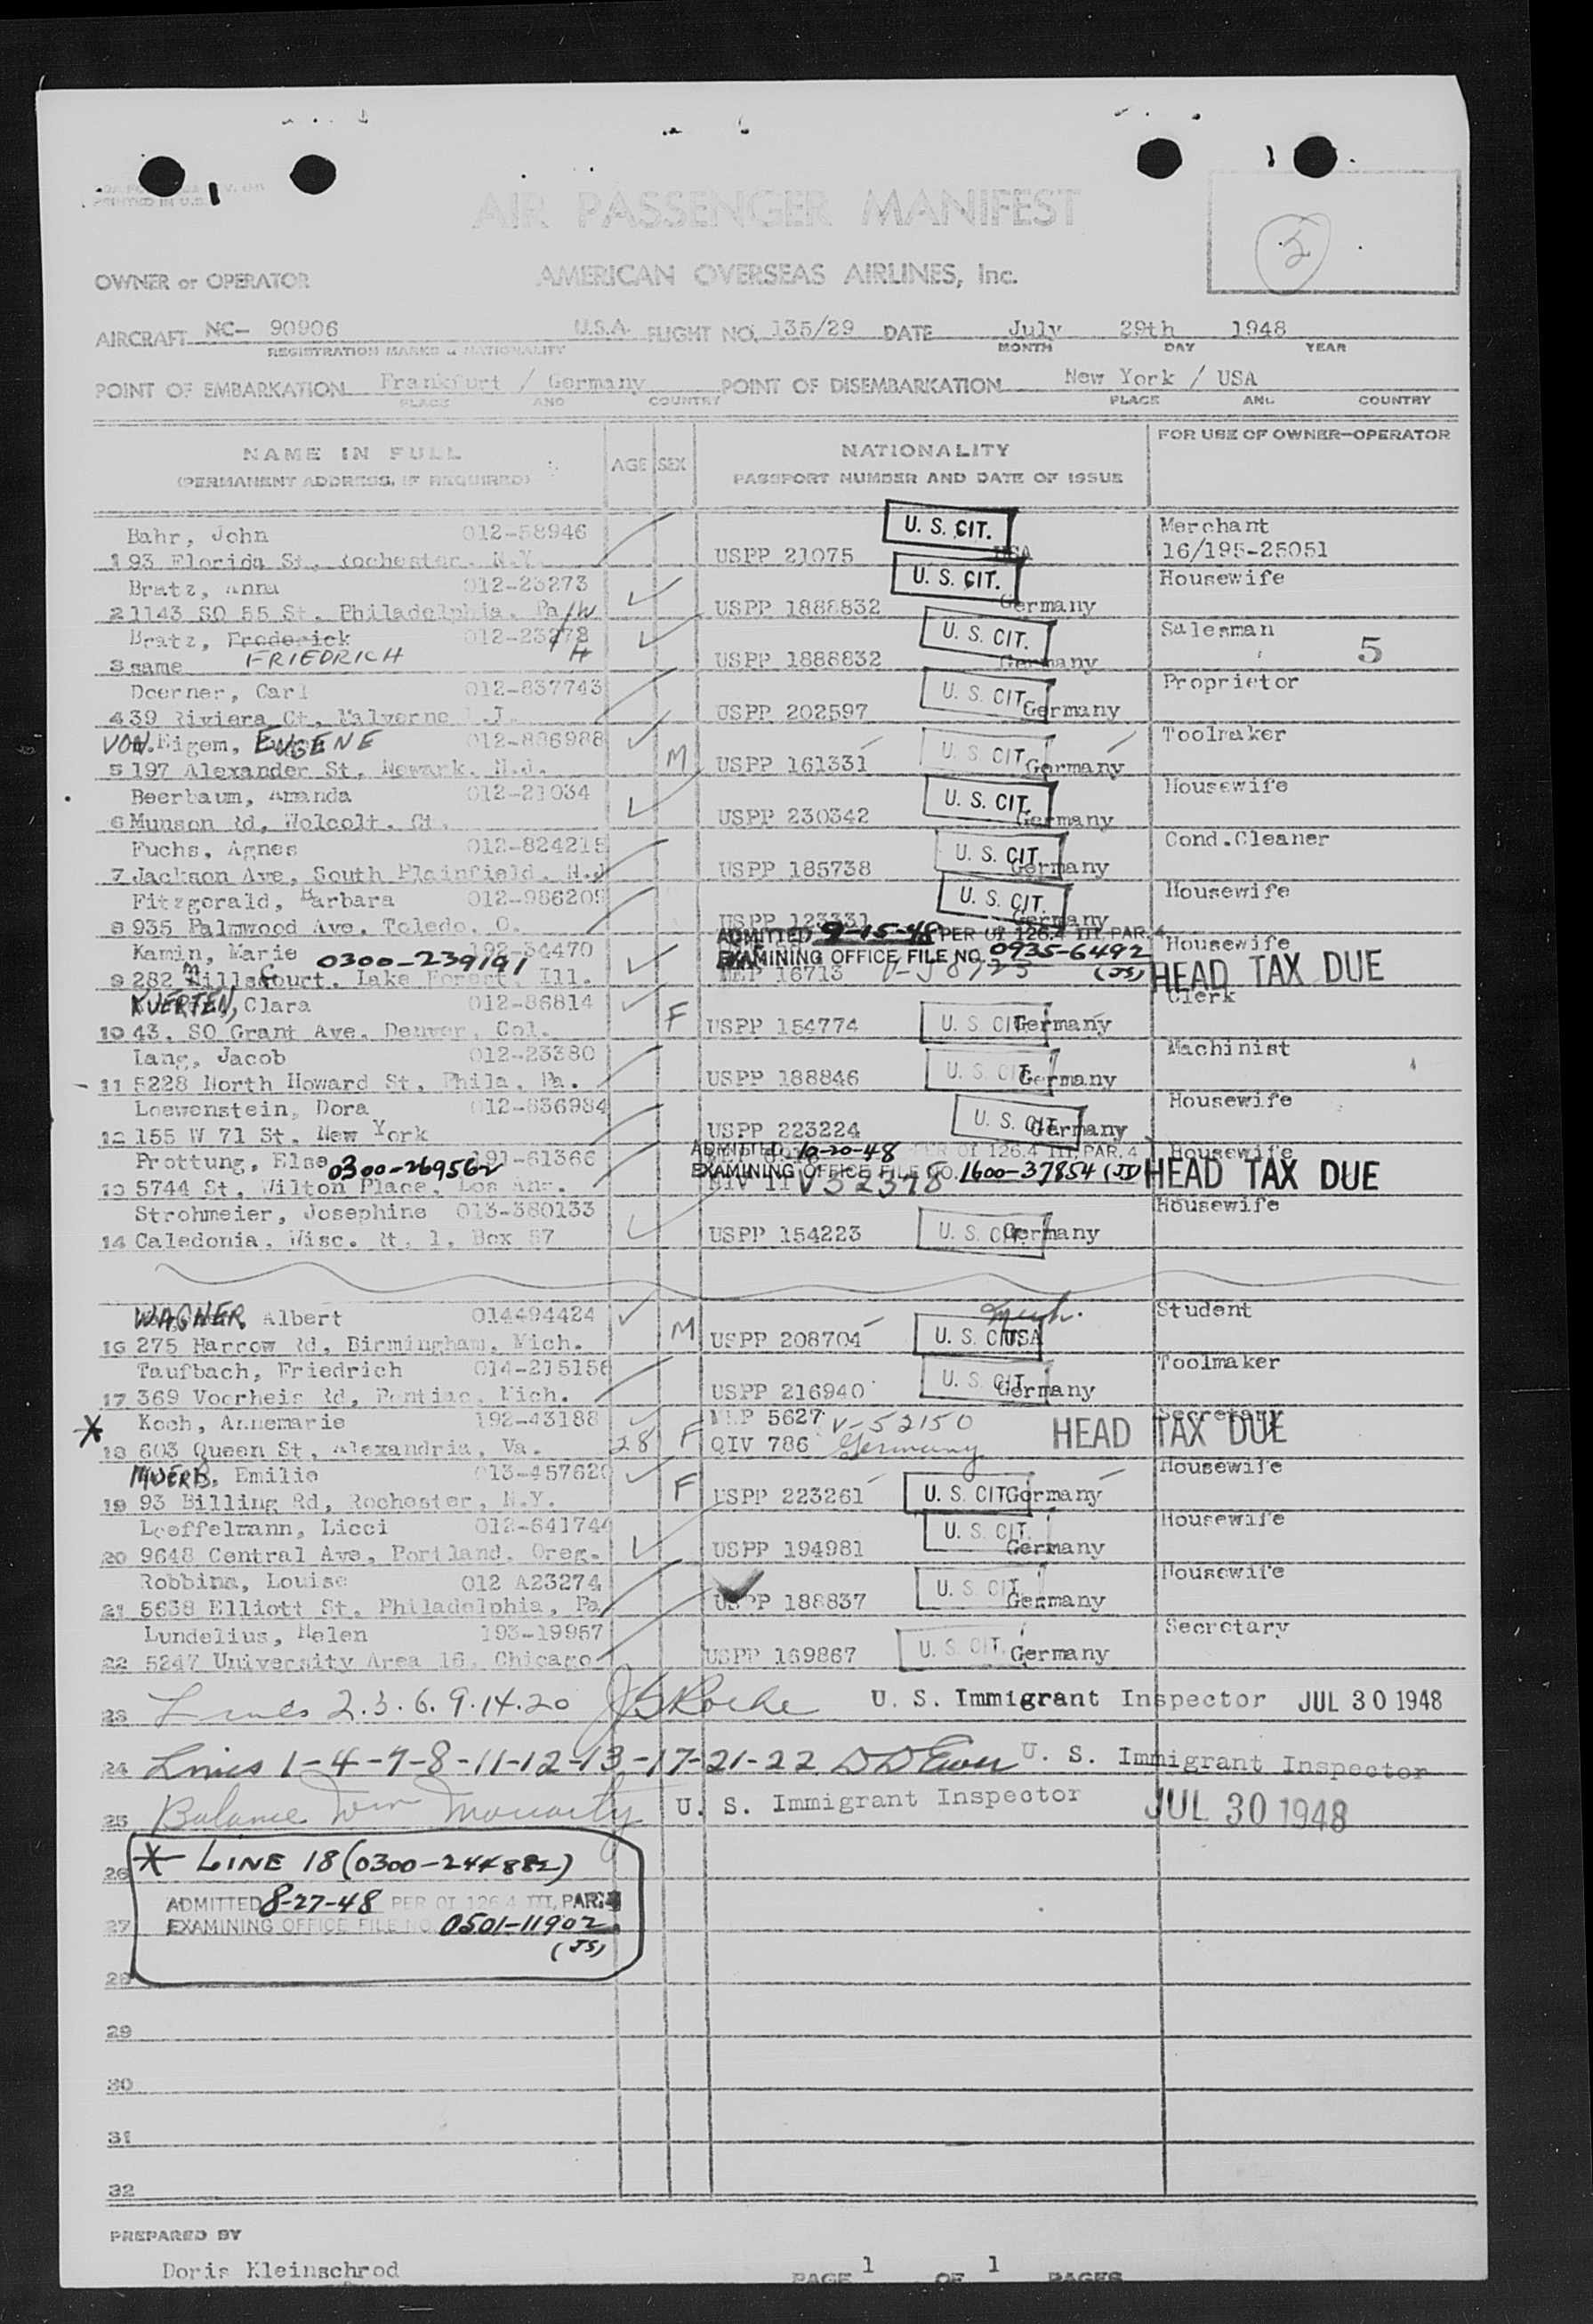 PRINTED IN U.S.
AIR PASSENGER MANIFEST
5
OWNER or OPERATOR AMERICAN OVERSEAS AIRLINES, Inc.
AIRCRAFT NC- 90906 U.S.A. FLIGHT NO. 135/29 DATE July 29th 1948
REGISTRATION MARKS & NATIONALITY MONTH DAY YEAR
POINT OF EMBARKATION Frankfurt / Germany POINT OF DISEMBARKATION New York / USA
PLACE AND COUNTRY PLACE AND COUNTRY
NAME IN FULL AGE SEX NATIONALITY FOR USE OF OWNER-OPERATOR
(PERMANENT ADDRESS, IF REQUIRED) PASSPORT NUMBER AND DATE OF ISSUE
Bahr, John 012-58946 U. S. CIT. Merchant
1 93 Florida St, Rochester, N.Y. USPP 21075 USA 16/195-25051
Bratz, Anna 012-23273 U. S. CIT. Housewife
2 1143 SO 55 St, Philadelphia, Pa /W USPP 1888832 Germany
Bratz, Frederick 012-23278 U. S. CIT. Salesman
3 same FRIEDRICH H USPP 1888832 Germany 5
Doerner, Carl 012-837743 U. S. CIT. Proprietor
4 39 Riviera Ct, Malverne USPP 202597 Germany
VON Eigem, EUGENE 012-886988 U. S. CIT. Toolmaker
5 197 Alexander St, Newark, N.J. M USPP 161331 Germany
Beerbaum, Amanda 012-21034 U. S. CIT. Housewife
6 Munson Rd, Wolcolt, Ct. USPP 230342 Germany
Fuchs, Agnes 012-824215 U. S. CIT. Cond.Cleaner
7 Jackson Ave, South Plainfield, N.J USPP 185738 Germany
Fitzgerald, Barbara 012-986209 U. S. CIT. Housewife
8 935 Palmwood Ave, Toledo, O. USPP 123331 Germany
ADMITTED 9-15-48 PER OI 126.4 III, PAR. 4
Kamin, Marie 0300-239191 192-34470 EXAMINING OFFICE FILE NO. 0935-6492 (JS) Housewife
9 282 Mills Court, Lake Forest, Ill. 16713 HEAD TAX DUE
KUERTEN, Clara 012-86814 Clerk
10 43, SO Grant Ave, Denver, Col. F USPP 154774 U. S. CIT. Germany
Lang, Jacob 012-23380 U. S. CIT. Machinist
11 5228 North Howard St, Phila, Pa. USPP 188846 Germany
Loewenstein, Dora 012-836984 U. S. CIT. Housewife
12 155 W 71 St, New York USPP 223224 Germany
ADMITTED 10-20-48 PER OI 126.4 III, PAR. 4
Prottung, Else 0300-269562 191-61366 EXAMINING OFFICE FILE NO. 1600-37854 (JS) Housewife
13 5744 St, Wilton Place, Los Ang. V 32378 HEAD TAX DUE
Strohmeier, Josephine 013-380133 Housewife
14 Caledonia, Wisc. Rt, 1, Box 57 USPP 154223 U. S. CIT. Germany
WAGNER, Albert 014494424 Student
16 275 Harrow Rd, Birmingham, Mich. M USPP 208704 U. S. CIT. USA
Taufbach, Friedrich 014-215156 U. S. CIT. Toolmaker
17 369 Voorheis Rd, Pontiac, Mich. USPP 216940 Germany
* Koch, Annemarie 192-43188 MEP 5627 V-52150 Secretary
18 603 Queen St, Alexandria, Va. 28 F QIV 786 Germany HEAD TAX DUE
Emilie 013-457620 Housewife
19 93 Billing Rd, Rochester, N.Y. F USPP 223261 U. S. CIT. Germany
Loeffelmann, Licci 012-641744 U. S. CIT. Housewife
20 9648 Central Ave, Portland, Oreg. USPP 194981 Germany
Robbins, Louise 012 A23274 U. S. CIT. Housewife
21 5638 Elliott St, Philadelphia, Pa USPP 188837 Germany
Lundelius, Helen 193-19957 Secretary
22 5247 University Area 16, Chicago USPP 169867 U. S. CIT. Germany
23 Lines 2.3.6.9.14.20 Roche U. S. Immigrant Inspector JUL 30 1948
24 Lines 1-4-7-8-11-12-13-17-21-22 U. S. Immigrant Inspector
25 Balance Wm Moriarty U. S. Immigrant Inspector JUL 30 1948
26 * LINE 18 (0300-244882)
ADMITTED 8-27-48 PER OI 126.4 III, PAR. 4
27 EXAMINING OFFICE FILE NO. 0501-11902
(JS)
28
29
30
31
32
PREPARED BY
Doris Kleinschrod PAGE 1 OF 1 PAGES